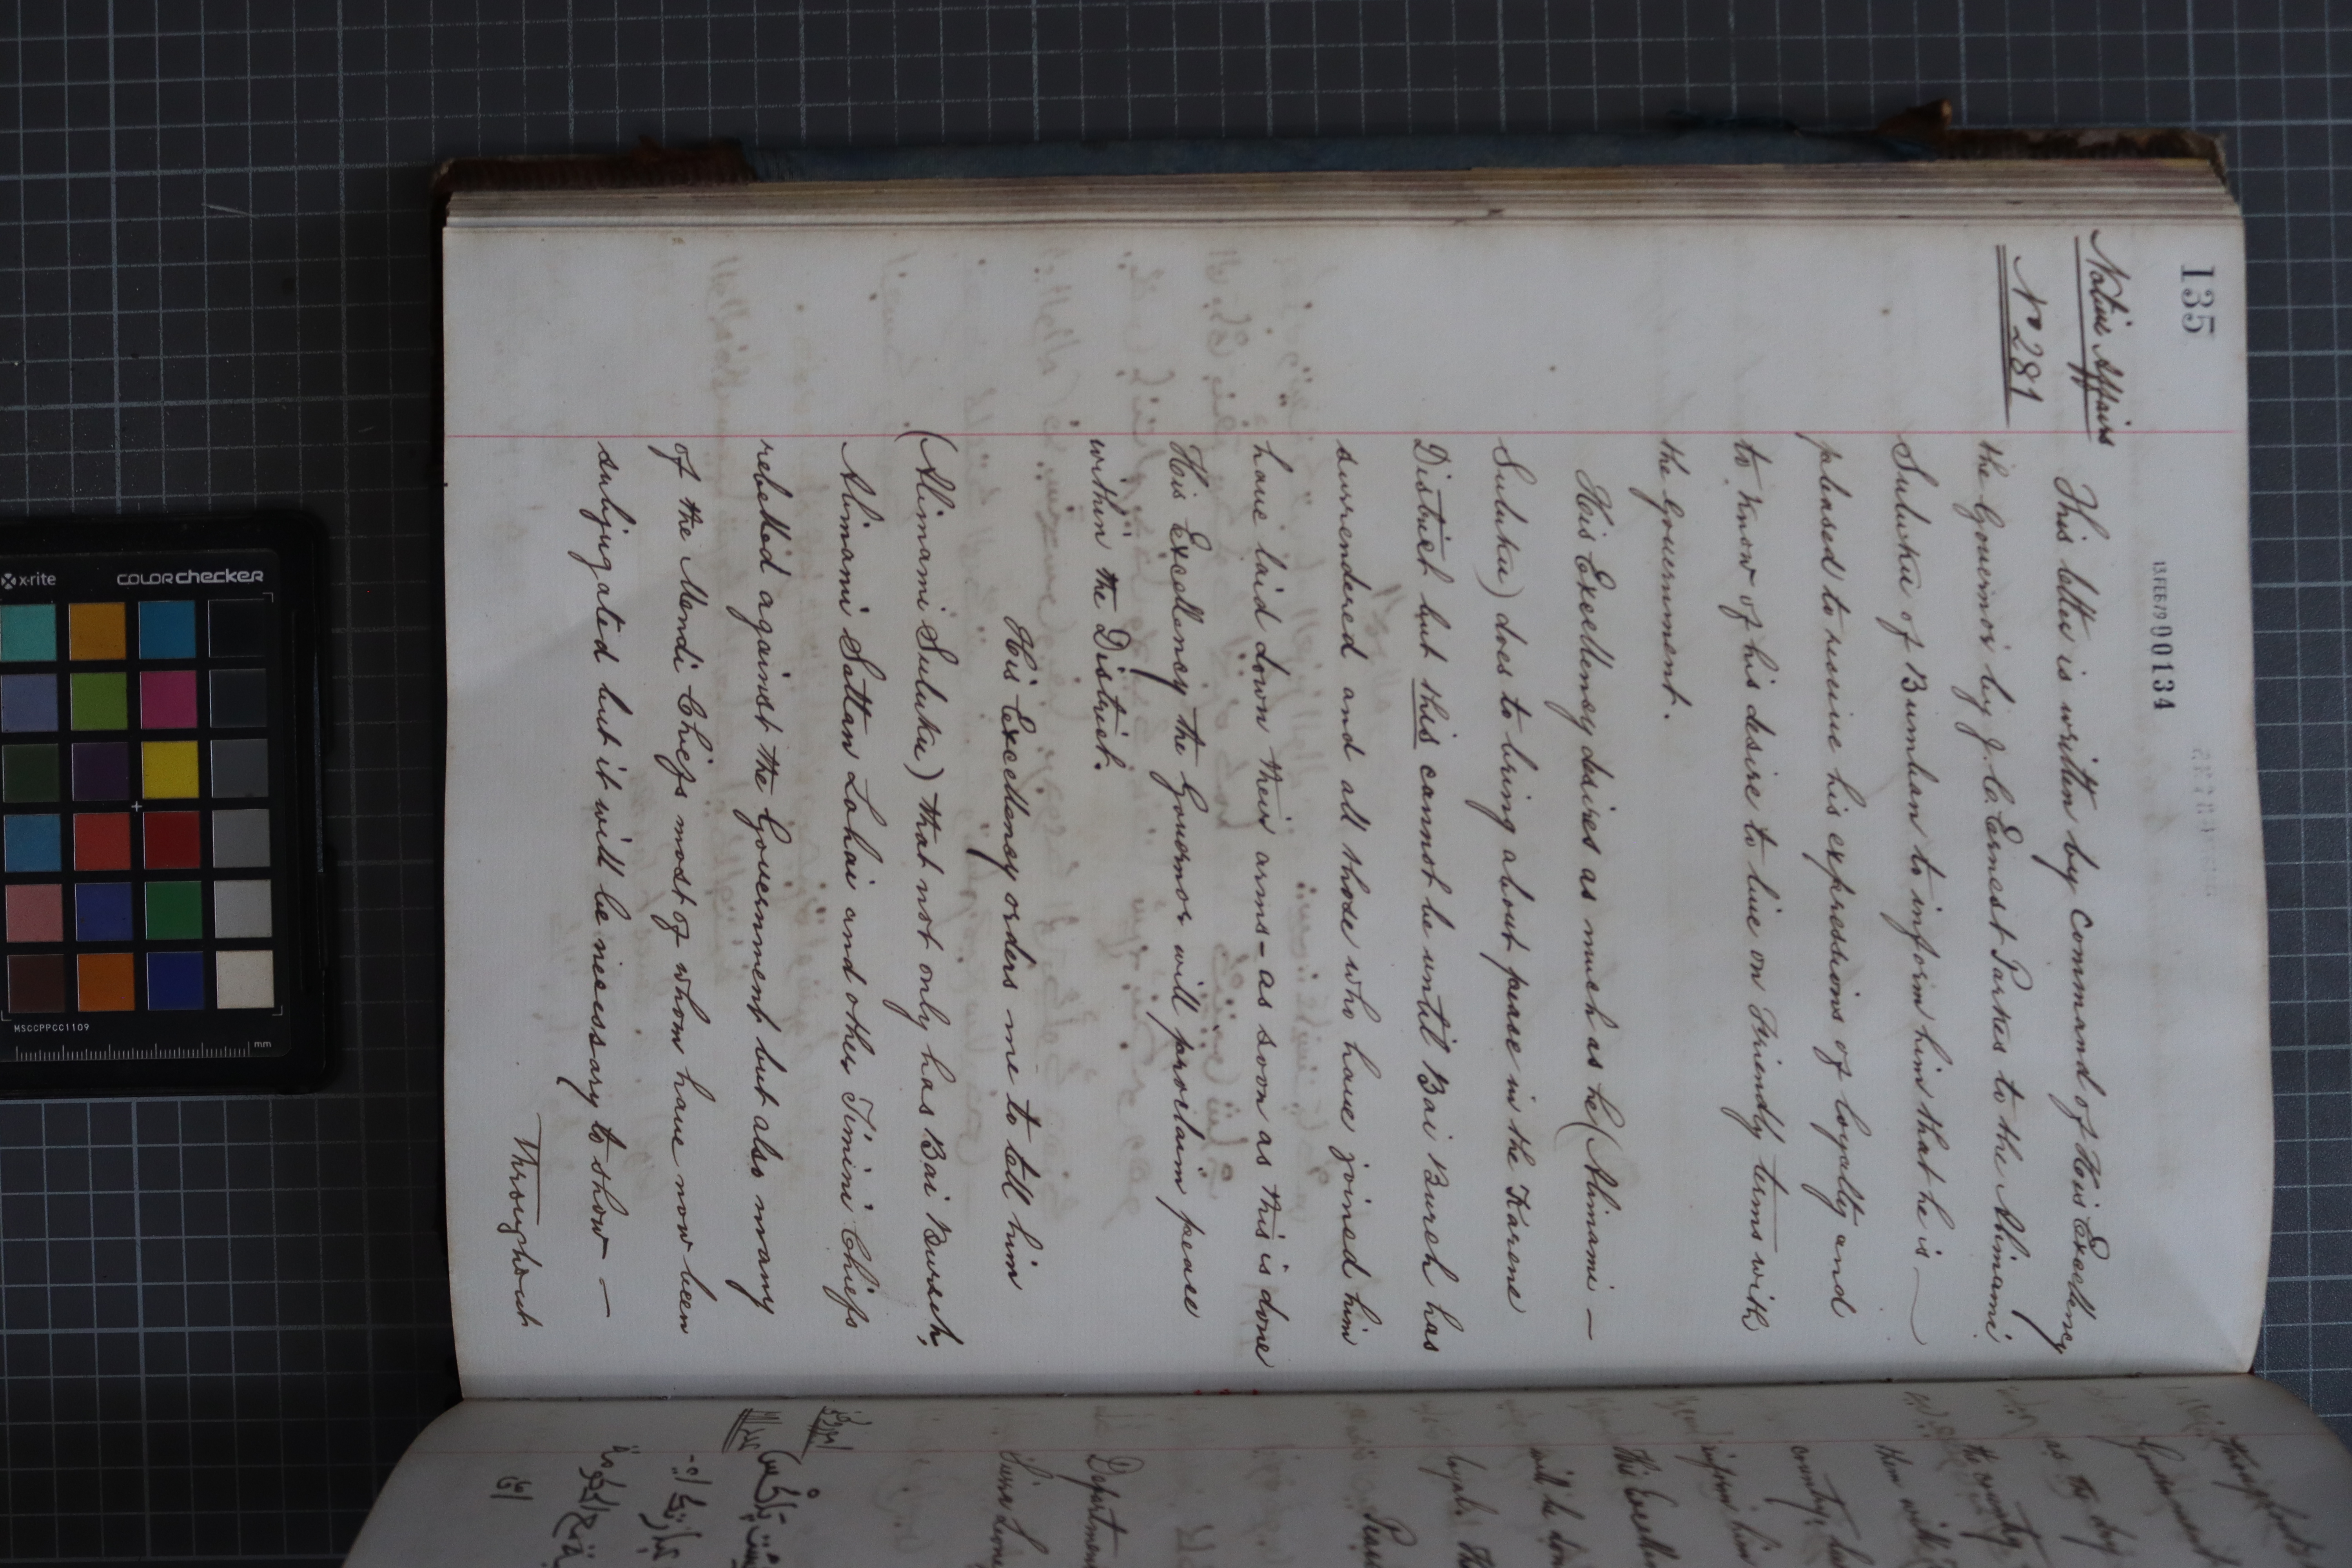 135
13 FEB 79 00134
Native Affairs
No 281
This letter is written by command of His Excellency
the Governor by J. C. Ernest Parkes to the Alimami
Suluku of Bumban to inform him that he is —
pleased to receive his expressions of loyalty and
to know of his desire to live on Friendly terms with
the Government.
His Excellency desires as much as he (Alimami —
Suluku) does to bring about peace in the Karene
District but this cannot be until Bai Bureh has
surrendered and all those who have joined him
have laid down their arms - as soon as this is done
His Excellency the Governor will proclaim peace
within the District.
His Excellency orders me to tell him
(Alimami Suluku) that not only has Bai Bureh,
Alimami Sattan Lahai and other Timini Chiefs
rebelled against the Government but also many
of the Mendi Chiefs most of whom have now been
subjugated but it will be necessary to show —
Throughout
throughout
Government
as the dry
the country
them with
country, but
inform him
His Excelle
will be don
loyal. Th
Departmen
Sierra Leone
x-rite
colorchecker
MSCCPPCC1109
mm